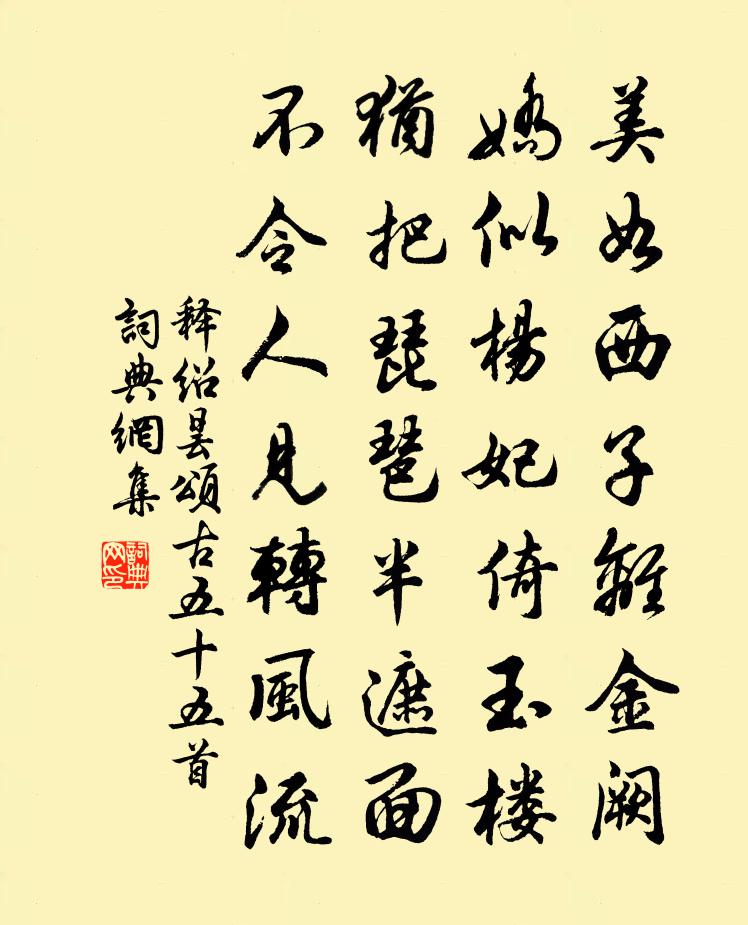 美如西子離金闕
嬌似楊妃倚玉楼
猶把琵琶半遮面
不令人見轉風流
释绍曇頌古五十五首
詞典網集
詞典网印